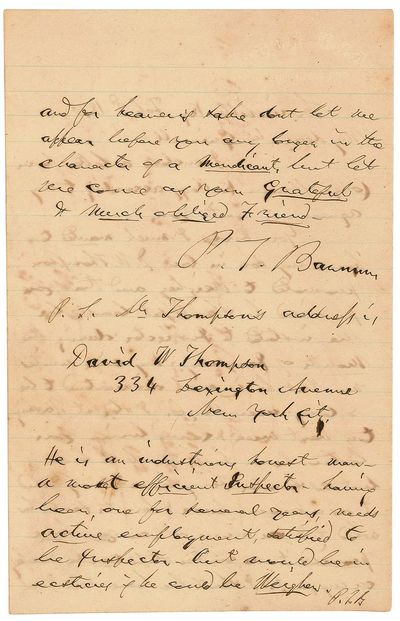 and for heavens sake dont let me
appear before you any longer in the
character of a Mendicant, but let
me come as your Grateful
& Much obliged Friend -
P. T. Barnum
P.S. Mr Thompson's address is,
David W Thompson
334 Lexington Avenue
New York City,
He is an industrious honest man -
a most efficient Inspector having
been one for several years, needs
active employment, satisfied to
be Inspector - but would be in
ecstacies if he could be Weigher.
P.T.B